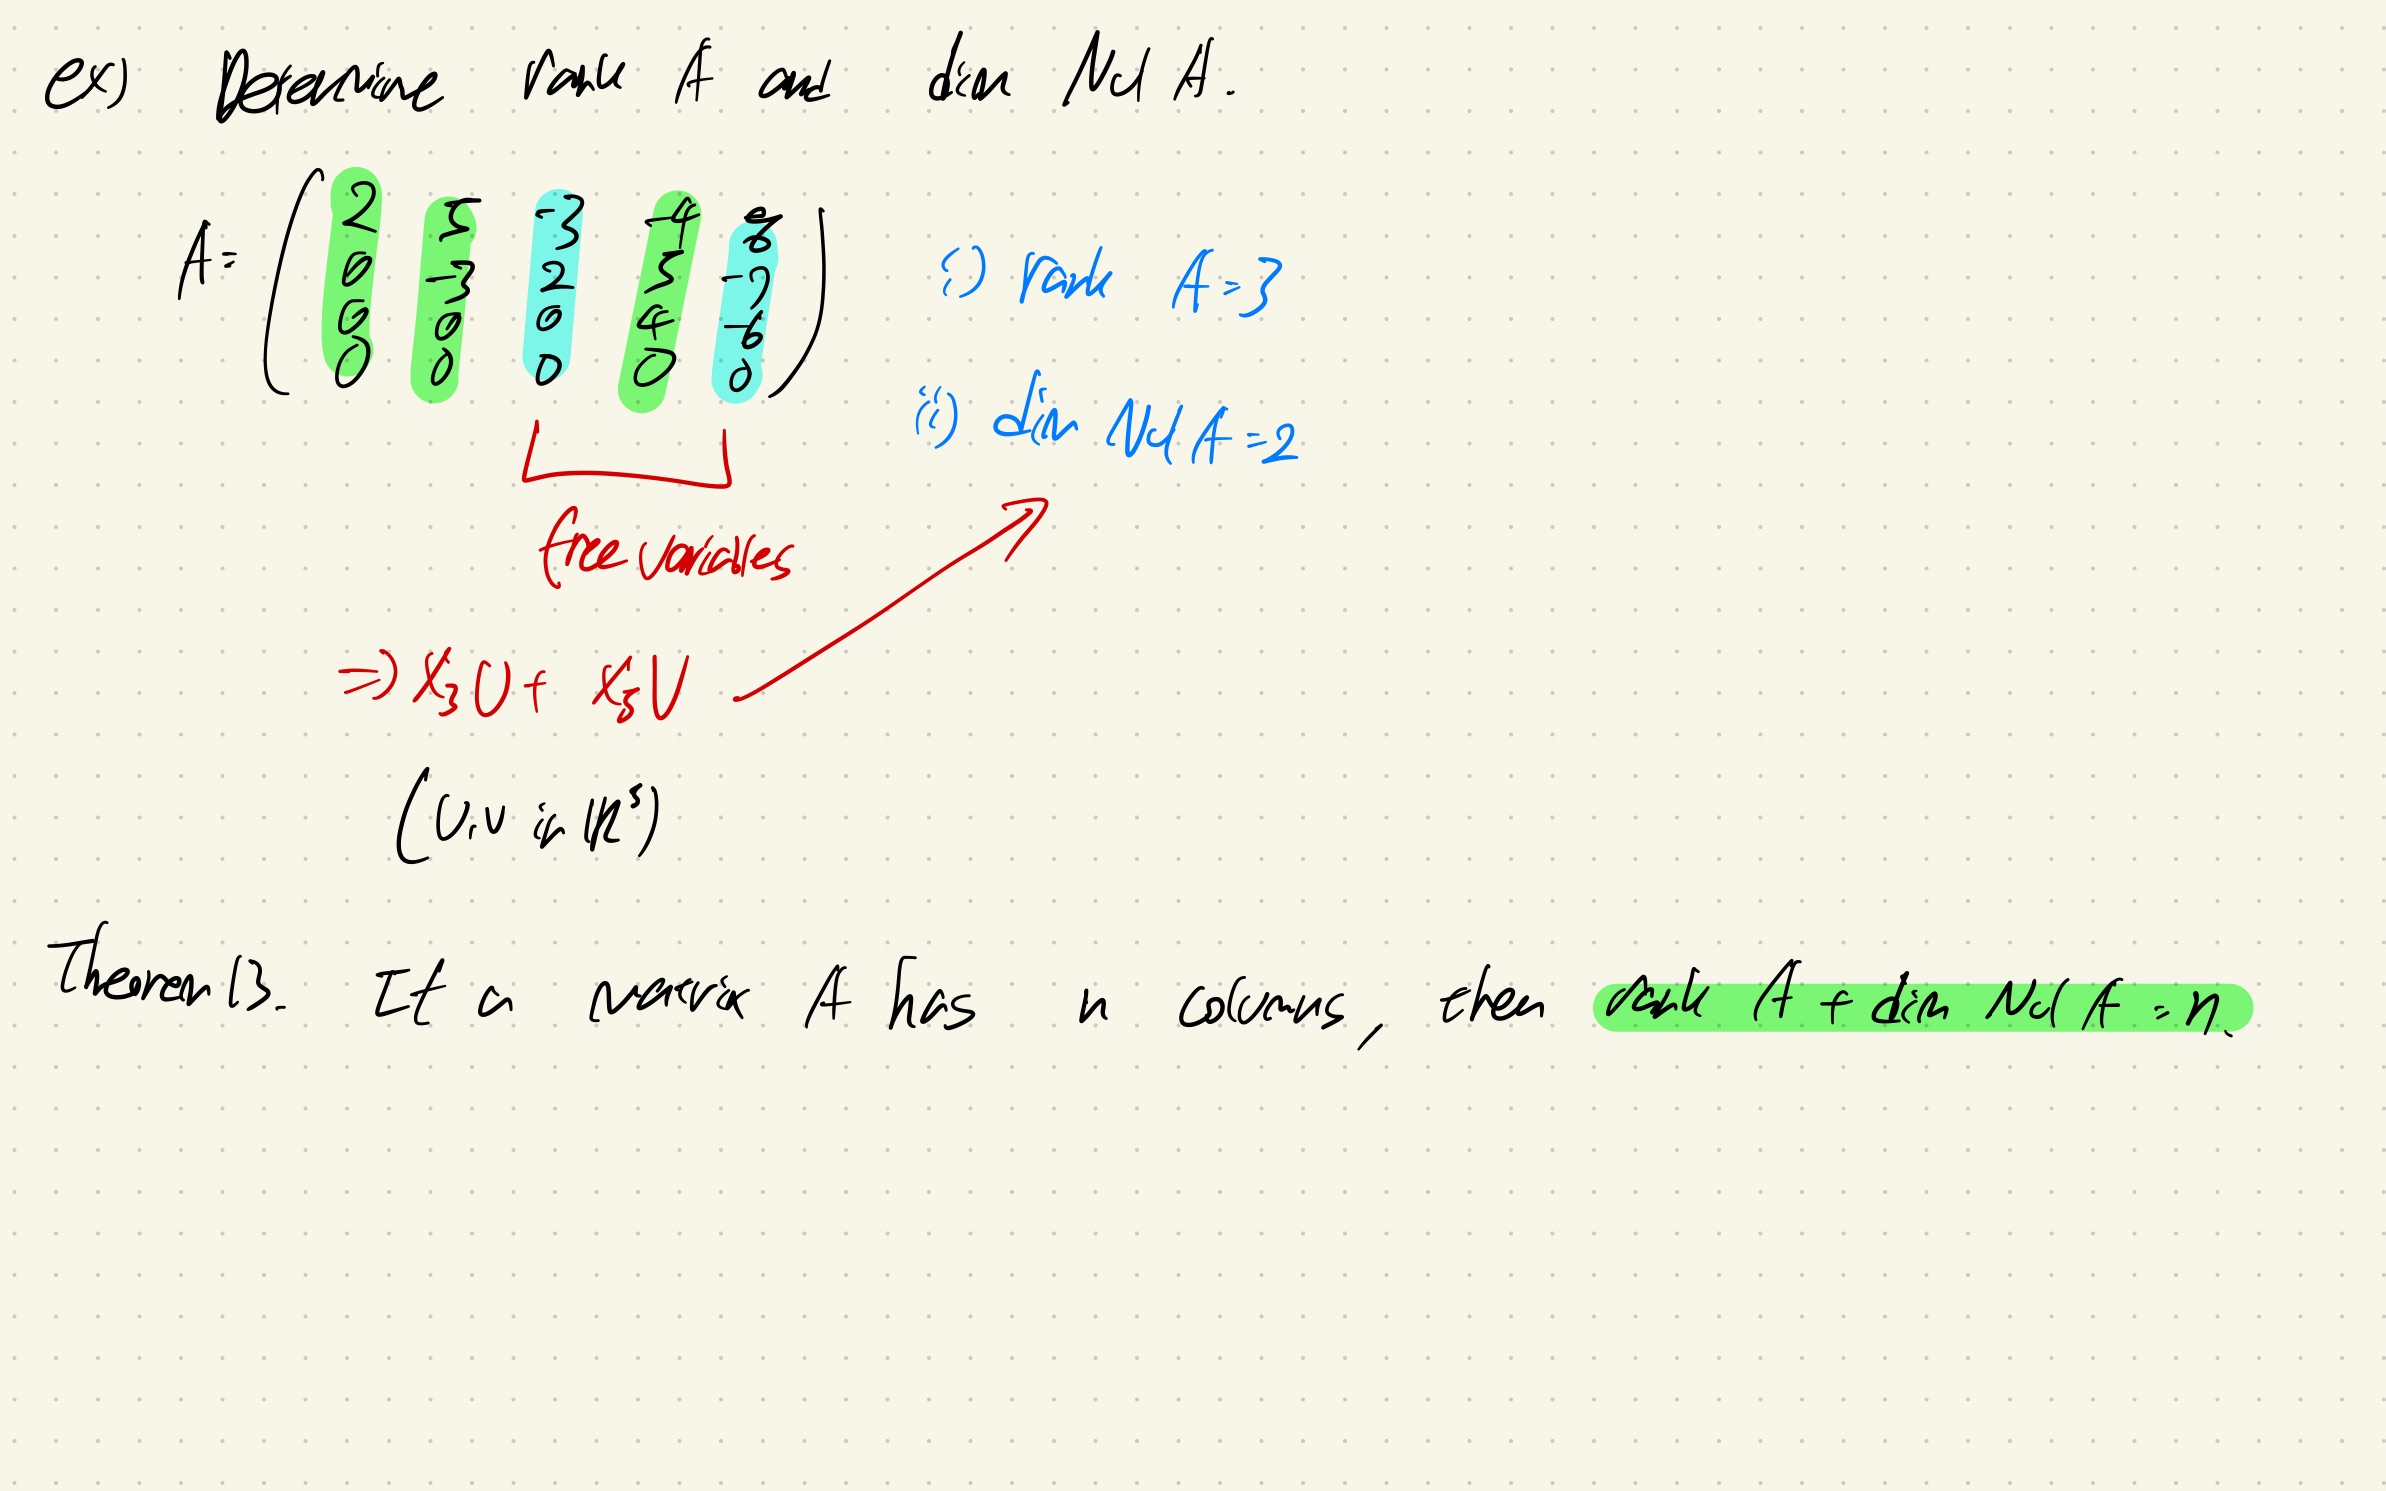 ex) Determine rank A and dim Nul A.
A = ( 2 5 -3 -4 8
0 -3 2 5 -7
0 0 0 4 -6
0 0 0 0 0 )
i) rank A = 3
ii) dim Nul A = 2
free variables
⇒ X₃U + X₅V
(U, V in ℝ⁵)
Theorem 13. If a matrix A has n columns, then rank A + dim Nul A = n.